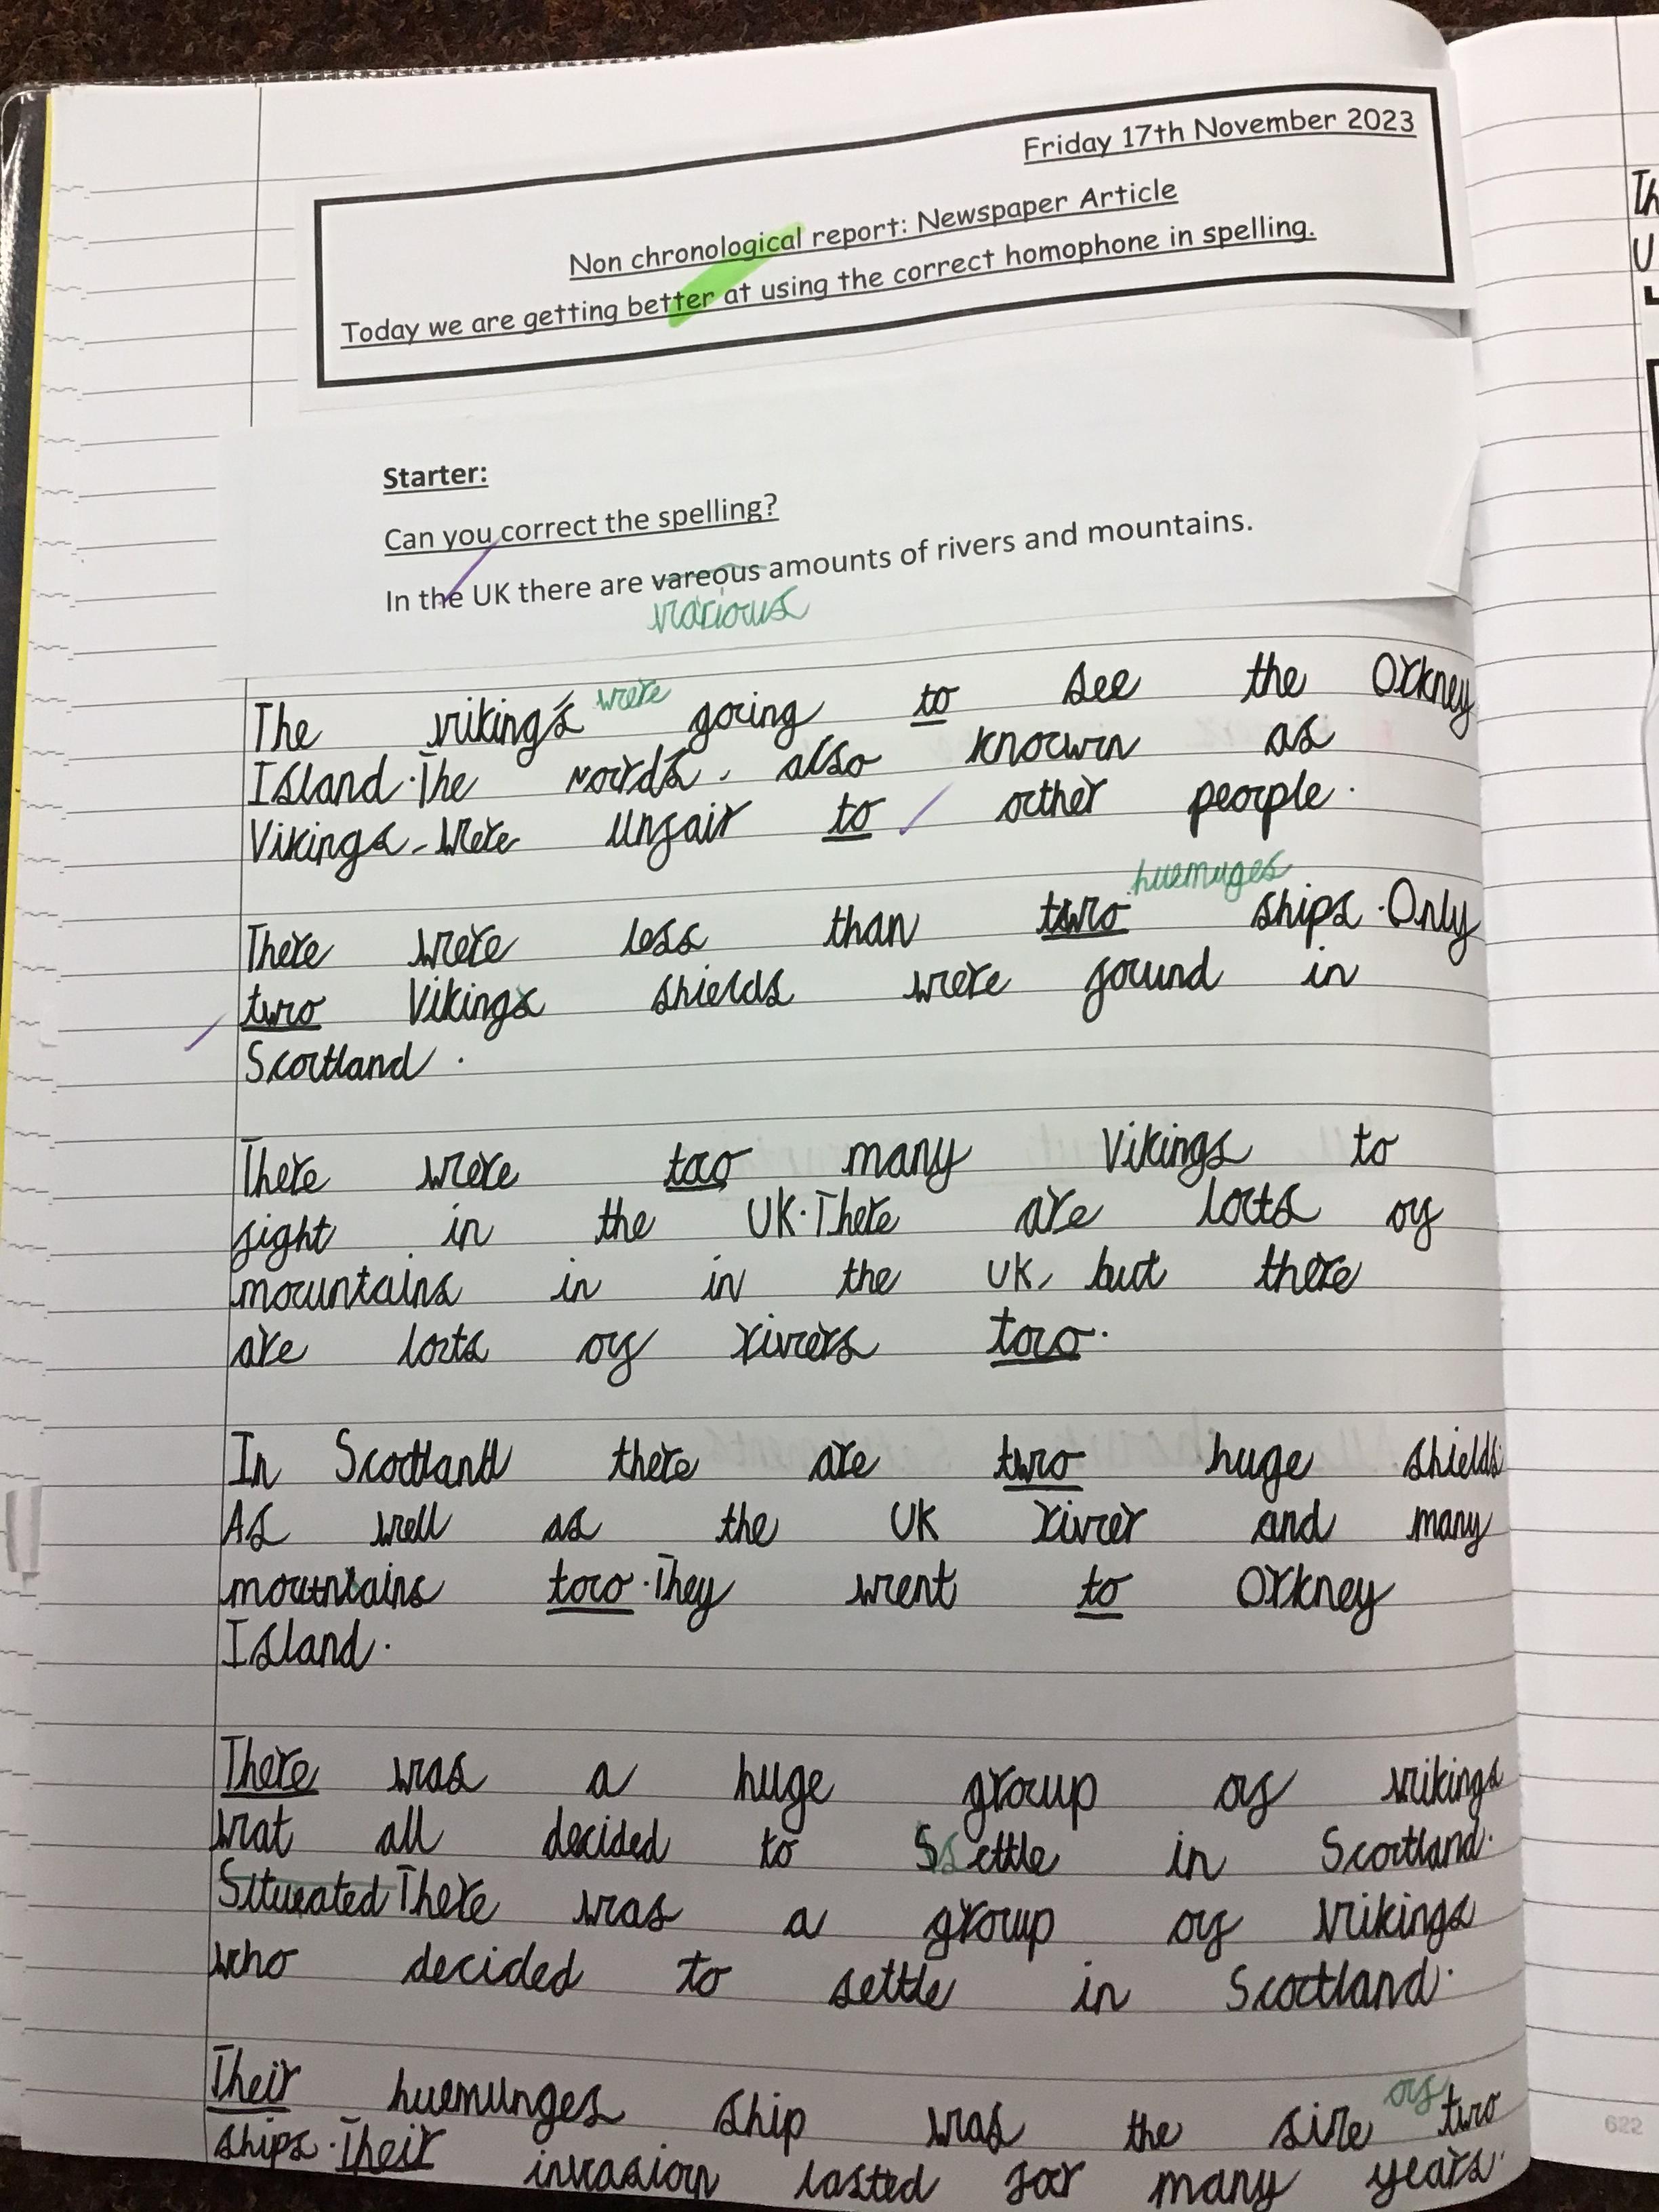 Friday 17th November 2023
Non chronological report: Newspaper Article
Today we are getting better at using the correct homophone in spelling.
Starter:
Can you correct the spelling?
In the UK there are vareous amounts of rivers and mountains.
various
The viking's were going to see the Orkney
Island. The Nords, also known as
Vikings - Were unfair to other people.
huemuges
There were less than two ships. Only
two Vikings shields were found in
Scotland.
There were too many Vikings to
fight in the UK. There are lots of
mountains in in the UK, but there
are lots of rivers too.
In Scotland there are two huge shields.
As well as the UK river and many
mountains too. They went to Orkney
Island.
There was a huge group of vikings
wat all decided to settle in Scotland.
Situeated There was a group of vikings
who decided to settle in Scotland.
Their huemunges ship was the size of two
ships. Their invasion lasted for many years.
Th
U
622